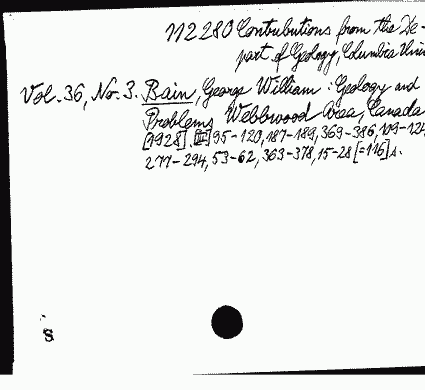 N2280 Contributions from the De-
part of Geology, Columbia Univ
Vol. 36, No. 3. Bain, George William : Geology and
Problems Webbwood Area, Canada
[1928]. 95-120, 187-189, 369-386, 109-124,
277-294, 53-62, 363-378, 15-28 [=116] s.
S